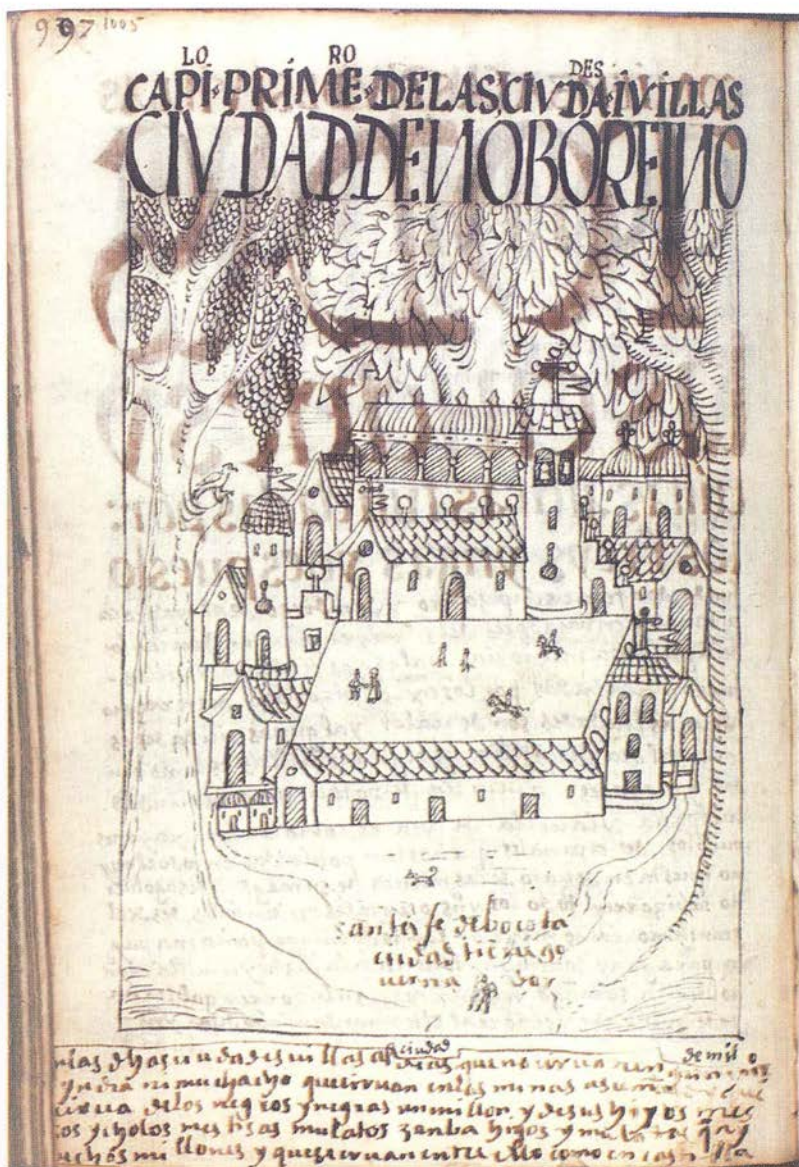 997 1005
LO RO DES
CAPI PRIME DELAS CIVDA IVILLAS
CIVDAD DE NOBO REINO
santa fe debocota
ciudad tiene go
uerna dor
ciudad de mil
dhas ciudadis uillas que no cirua
yndia ni muchacho que ciruan en las minas
cirua delos negros ynegras un millon y desus hijos mes
os ycholos mestisas mulatos zanba higos y mulatas q ay
uchos millones y que ciruan entre ello como en casti lla